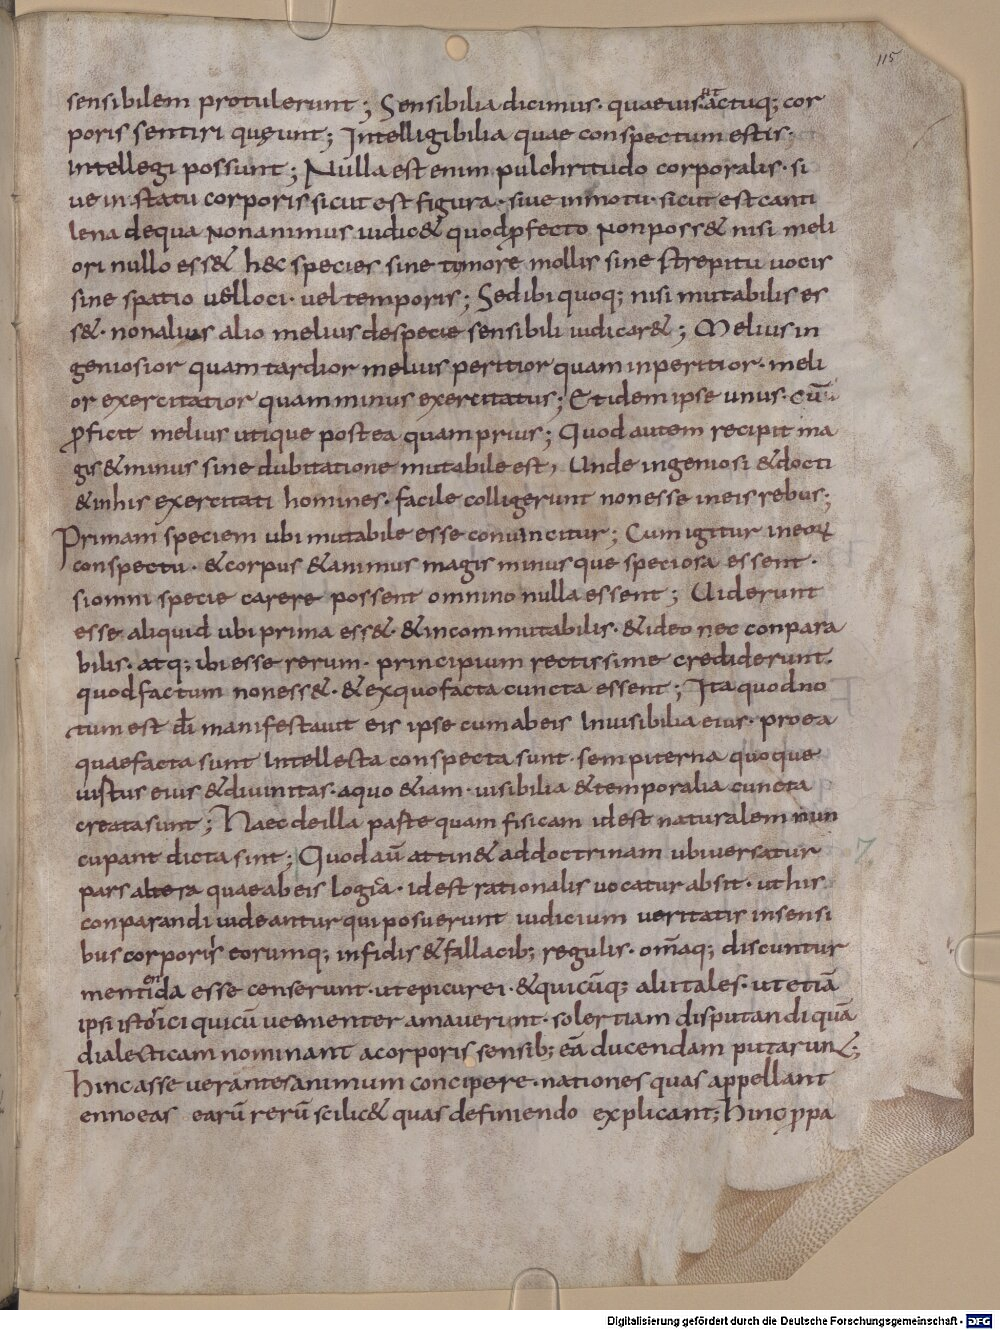 115
sensibilem protulerunt; Sensibilia dicimus· quae uisu actuq; cor
poris sentiri queunt; Intelligibilia quae conspectum estis·
intellegi possunt; Nulla est enim pulchritudo corporalis· si
ue in statu corporis sicut est figura· siue in motu· sicut est canti
lena de qua non animus iudic& quod ꝓfecto non poss& nisi meli
ori nullo ess& hęc species sine tumore mollis sine strepitu uocis
sine spatio uel loci· uel temporis; Sed ibi quoq; nisi mutabilis es
s&· non alius alio melius de specie sensibili iudicar&; Melius in
geniosior quam tardior melius peritior quam inperitior· meli
or exercitatior quam minus exercitatus; Et idem ipse unus· cū
ꝓficit melius utique postea quam prius; Quod autem recipit ma
gis & minus sine dubitatione mutabile est, Unde ingeniosi & docti
& in his exercitati homines· facile colligerunt non esse in eis rebus;
Primam speciem ubi mutabile esse conuincitur; Cum igitur in eoꝝ
conspectu· & corpus & animus magis minusque speciosa essent·
si omni specie carere possent omnino nulla essent; Uiderunt
esse aliquid ubi prima ess&· & incommutabilis· & ideo nec conpara
bilis· atq; ibi esse rerum· principium rectissime crediderunt·
quod factum non ess&· & ex quo facta cuncta essent; Ita quod no
tum est dī manifestauit eis ipse cum ab eis Inuisibilia eius· pro ea
quae facta sunt Intellecta conspecta sunt· sempiterna quoque
uirtus eius & diuinitas· a quo &iam· uisibilia & temporalia cuncta
creata sunt; Haec de illa parte quam fisicam id est naturalem nun
cupant dicta sint; Quod aū attin& ad doctrinam ubi uersatur
pars altera quae ab eis logica· id est rationalis uocatur absit· ut his
conparandi uideantur qui posuerunt iudicium ueritatis in sensi
bus corporis eorumq; infidis & fallacib; regulis· om̄aq; discuntur
mentienda esse censerunt· ut epicurei· & quicūq; alii tales· ut etiā
ipsi istoici qui cū uementer amauerunt· solertiam disputandi quā
dialecticam nominant a corporis sensib; eā ducendam putarunt;
hinc asse uerantes animum concipere· nationes quas appellant
ennoeas earū rerū scilic& quas definiendo explicant; hinc ꝓpa
Digitalisierung gefördert durch die Deutsche Forschungsgemeinschaft - DFG